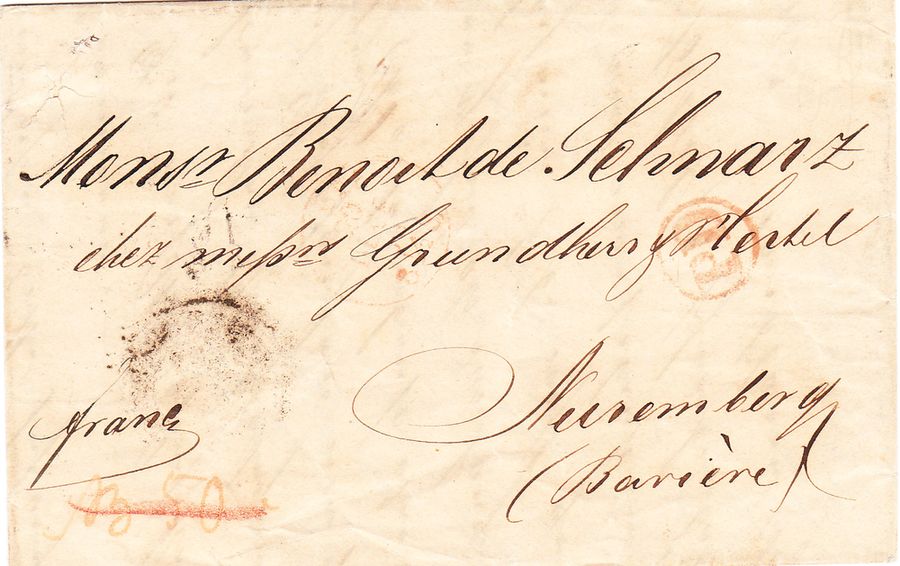 Monsr Benoit de Schwarz
chez messrs Grundherr & Hertel
Nuremberg
franc
(Bavière)
50